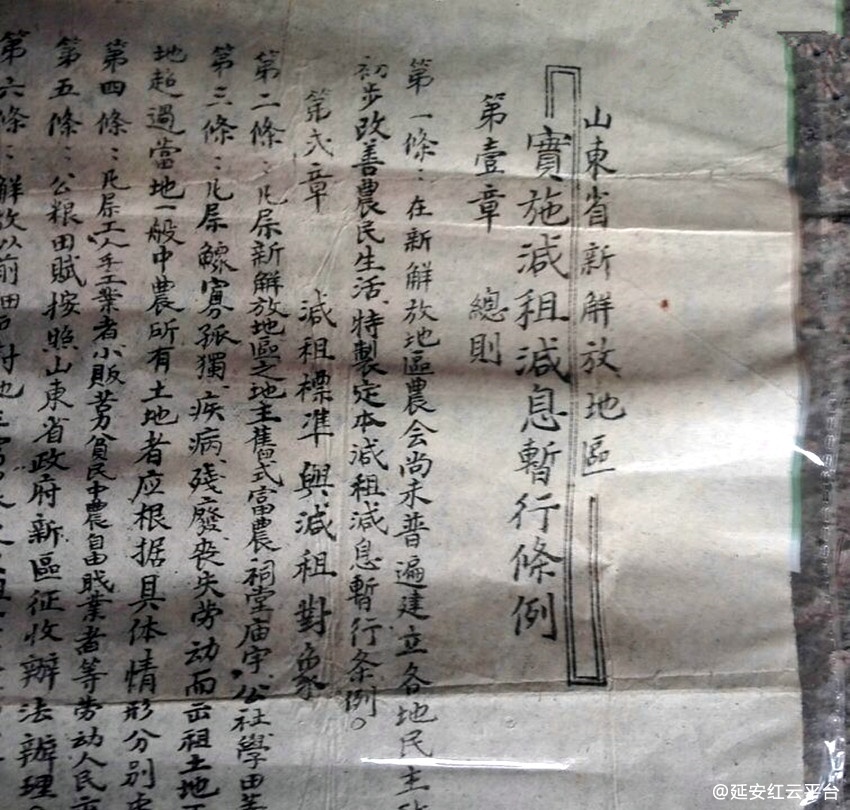 山東省新解放地區
實施減租減息暫行條例
第壹章 總則
第一條：在新解放地區農会尚未普遍建立各地民主
初步改善農民生活、特製定本減租減息暫行条例。
第弍章 減租標準與減租對象
第二條：凡屬新解放地區之地主舊式富農、祠堂庙宇、公社學田
第三條：凡屬鰥寡孤獨、疾病、残廢丧失劳动而出租土地
地超過當地一般中農所有土地者应根据具体情形分别
第四條：凡屬工人手工業者小販貧民中農自由職業者等劳动人民
第五條：公粮田賦按照山東省政府新區征收辦法辦理。
第六條：解放以前
@延安红云平台